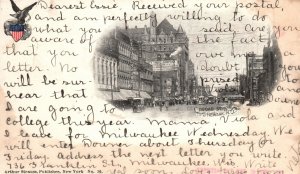 Dearest Essie, Received your postal,
and am perfectly willing to do
what you said, are you
aware of the fact
that you
letter. No doubt
will be sur- prised to
hear that I
I are going to
college this year. Mama Viola and
I leave for Milwaukee Wednesday. We
will enter Downer about Thursday or
Friday. Address the next letter you write
736 Franklin St. Milwaukee, Wis.
Arthur Strauss, Publisher, New York No. 28.